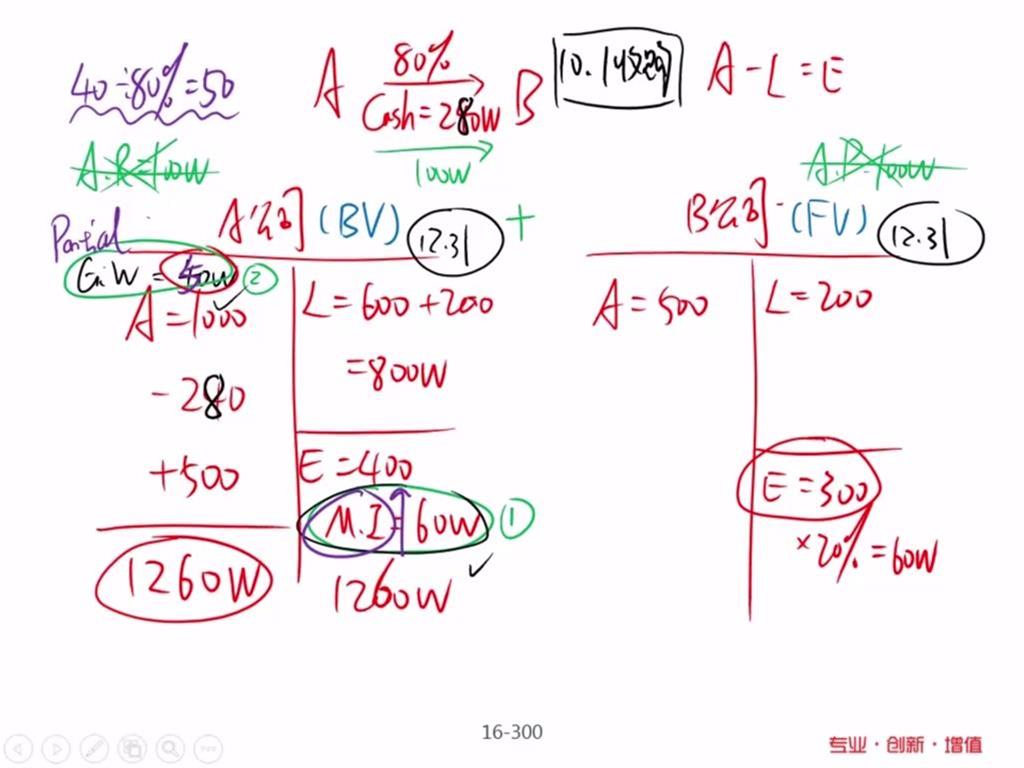 40÷80%=50
A 80% B
Cash=280W
100W
10.1收购
A-L=E
A.R=100W
A.P=100W
Partial
A公司 (BV) 12.31 +
B公司 (FV) 12.31
G.W = 40W ②
A=1000
L=600+200
-280
=800W
+500
E=400
M.I=60W ①
1260W
1260W
A=500
L=200
E=300
×20%=60W
16-300
专业·创新·增值